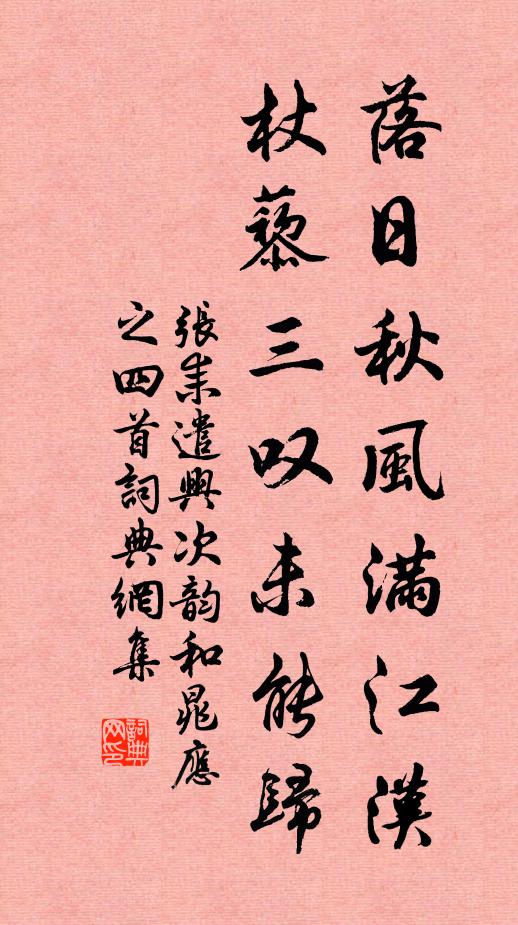 落日秋風滿江漢
杖藜三叹未能歸
張耒遣興次韵和晁應
之四首詞典網集
詞典
网印